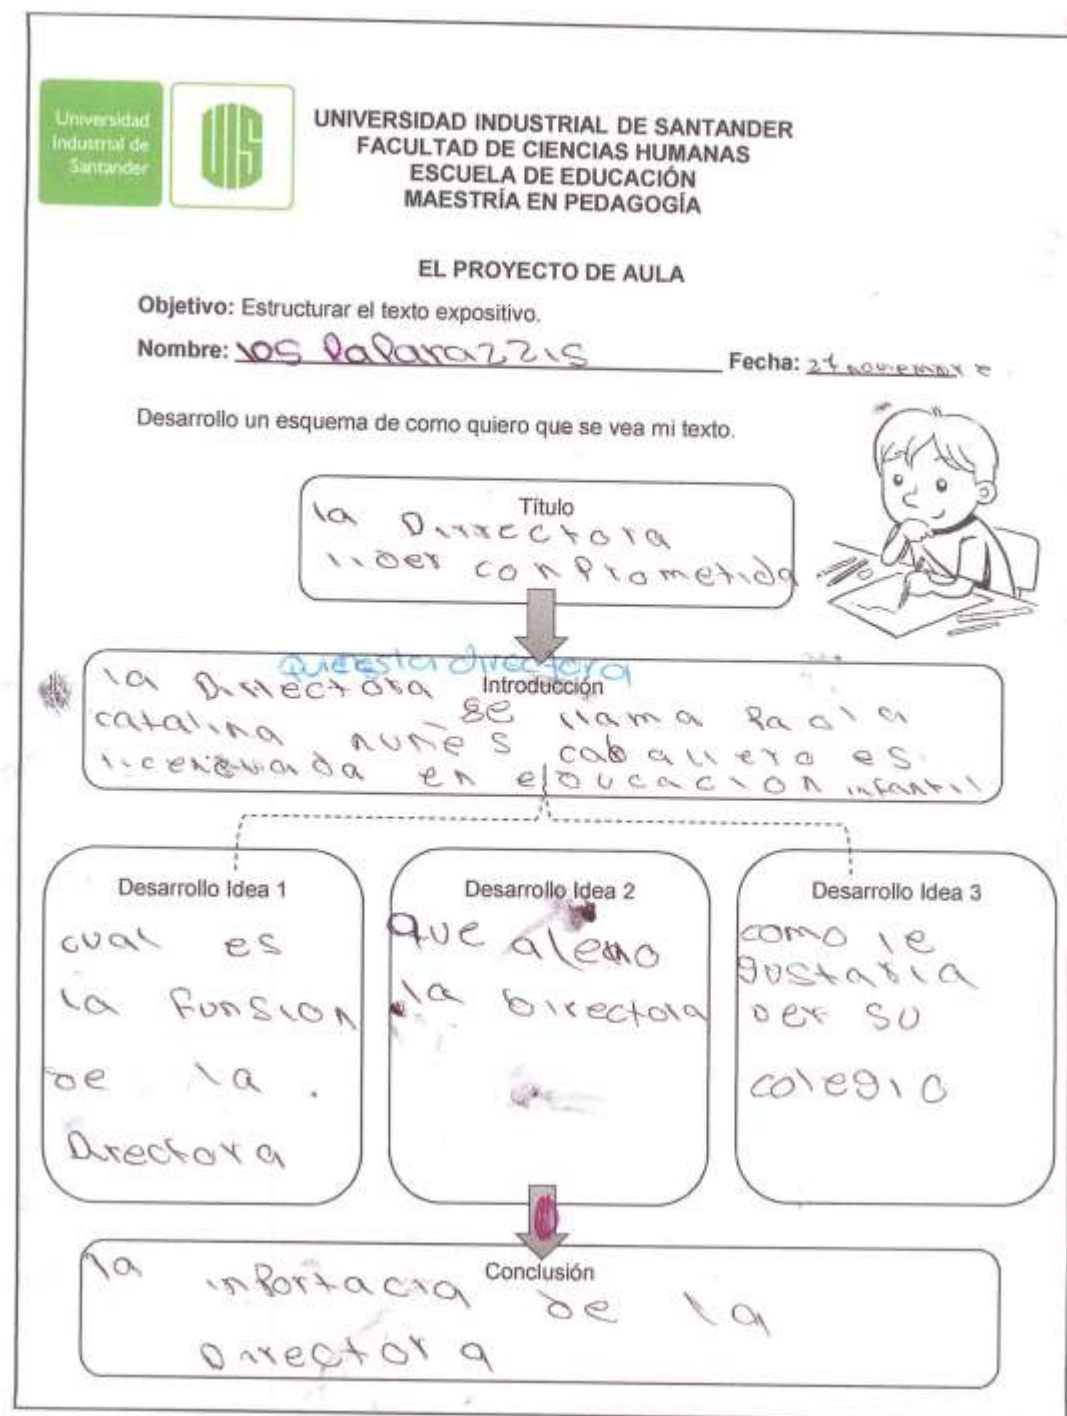 Universidad
Industrial de
Santander
UIS
UNIVERSIDAD INDUSTRIAL DE SANTANDER
FACULTAD DE CIENCIAS HUMANAS
ESCUELA DE EDUCACIÓN
MAESTRÍA EN PEDAGOGÍA
EL PROYECTO DE AULA
Objetivo: Estructurar el texto expositivo.
Nombre: los PaParazzis Fecha: 27 noviembre
Desarrollo un esquema de como quiero que se vea mi texto.
Título
la Dirrectora
lider conPrometida
Introducción
Quieesla directora
la Dirrectora se llama Paola
catalina nuñes caballero es
en educacion infantil
Desarrollo Idea 1
cual es
la Funsion
de la
Directora
Desarrollo Idea 2
que
la Directora
Desarrollo Idea 3
como le
gustaria
ver su
colegio
Conclusión
la inPortacia de la
Dirrectora